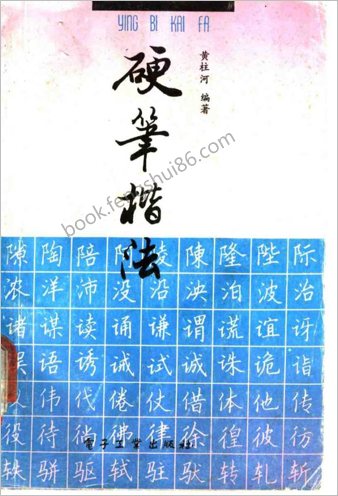 YING BI KAI FA
硬筆楷法
黄柱河 编著
book.fengshui86.com
隙陶陪陵陳隆陛际
浓洋沛没沿泱泊波治
诸谋读诵谦谓谎谊讶
误语诱诫试诚诛诡诣
伟伐倦仗借体他传
役待徜彿律徐徨彼彷
轶骈驱轼驻驮转轧斩
電子工業出版社